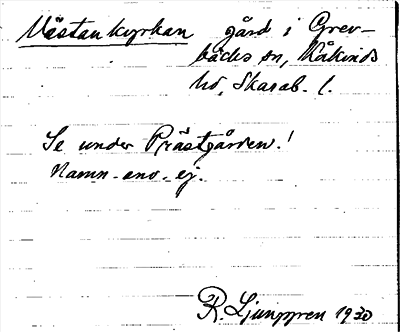 Västankyrkan gård i Grev-
bäcks sn, Kåkinds
hd, Skarab. l.
Se under Prästgården!
Namn-eno-ej.
R. Ljunggren 1930